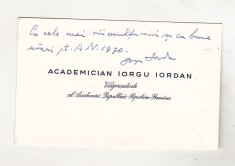 Cu cele mai vii mulțumiri și cu bune
urări pt. A.N. 1970.
Iorgu Iordan
ACADEMICIAN IORGU IORDAN
Vicepreședinte
al Academiei Republicii Populare Române